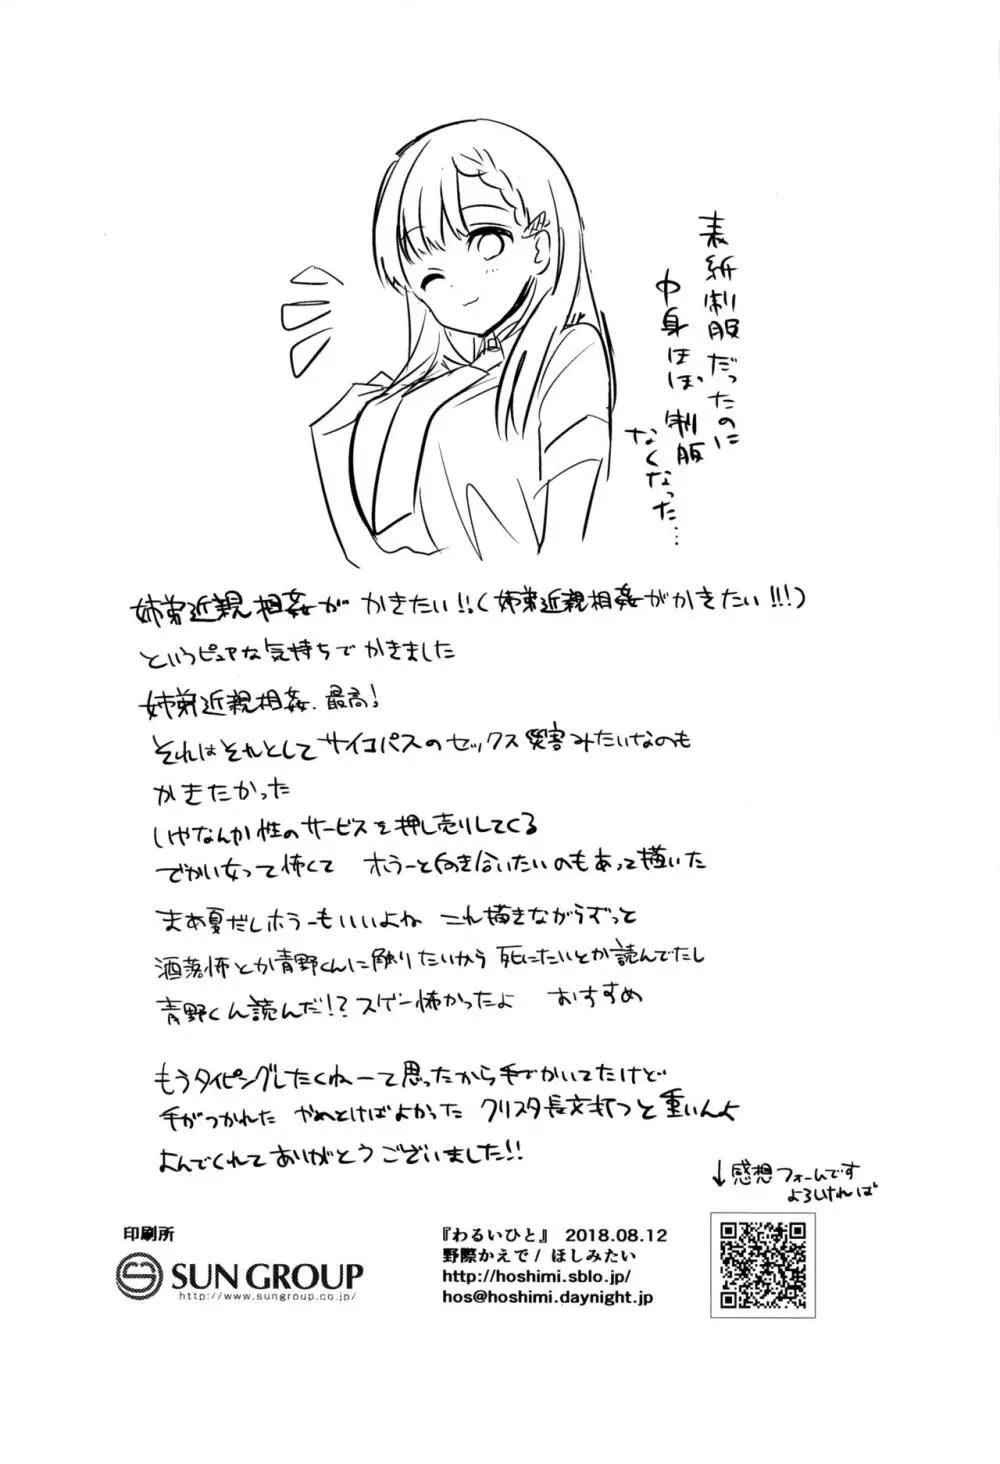 表紙制服だったのに
中身ほぼ制服
なくなった…
姉弟近親相姦がかきたい!!(姉弟近親相姦がかきたい!!!)
というピュアな気持ちでかきました
姉弟近親相姦、最高!
それはそれとしてサイコパスのセックス災害みたいなのも
かきたかった
いやなんか性のサービスを押し売りしてくる
でかい女って怖くて ホラーと向き合いたいのもあって描いた
まあ夏だしホラーもいいよね これ描きながらずっと
洒落怖とか青野くんに触りたいから死にたいとか読んでたし
青野くん読んだ!?スゲー怖かったよ おすすめ
もうタイピングしたくねーて思ったから手でかいてたけど
手がつかれた やめとけばよかった クリスタ長文打つと重いんよ
よんでくれてありがとうございました!!
↓感想フォームです
よろしければ
印刷所
SUN GROUP
http://www.sungroup.co.jp/
『わるいひと』 2018.08.12
野際かえで/ほしみたい
http://hoshimi.sblo.jp/
hos@hoshimi.daynight.jp